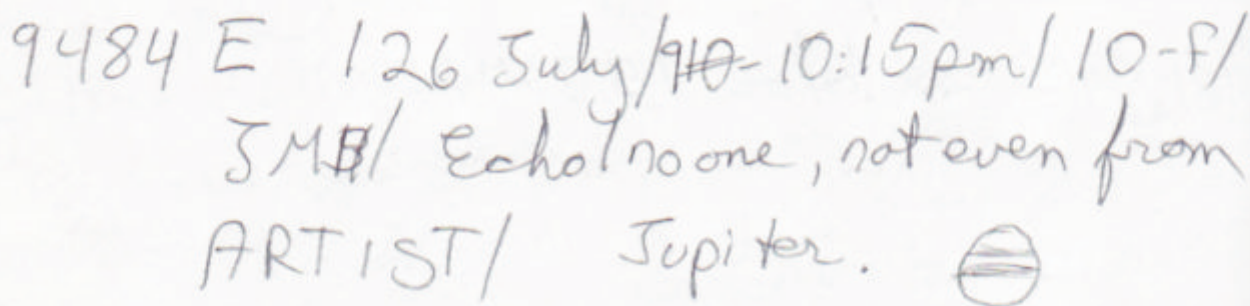 9484 E 126 July/910-10:15pm/10-f/
JMB/ Echo/no one, not even from
ARTIST/ Jupiter.